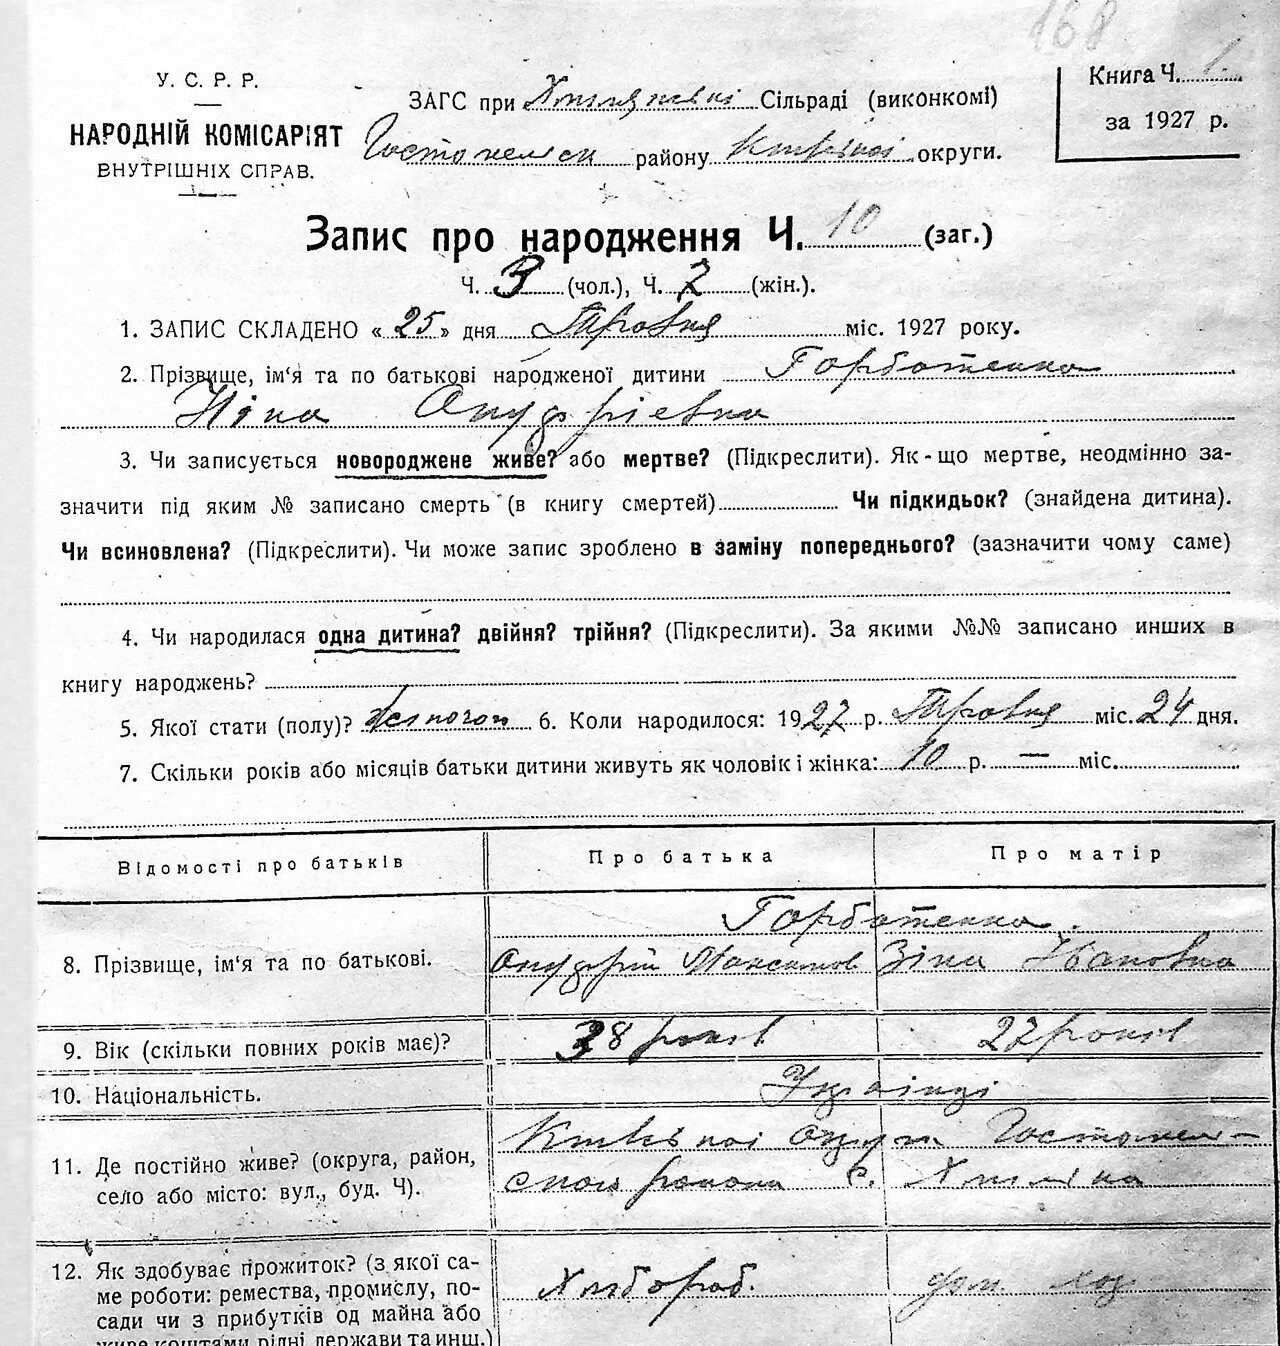 168
У. С. Р. Р.
НАРОДНІЙ КОМІСАРІЯТ
ВНУТРІШНІХ СПРАВ.
ЗАГС при Сільраді (виконкомі)
Гостомельск району Київської округи.
Книга Ч. 1.
за 1927 р.
Запис про народження Ч. 10 (заг.)
Ч. 3 (чол.), Ч. 7 (жін.).
1. ЗАПИС СКЛАДЕНО « 25 » дня Травня міс. 1927 року.
2. Прізвище, ім‘я та по батькові народженої дитини Горботенко
Ніна Онуфріевна
3. Чи записується новороджене живе? або мертве? (Підкреслити). Як-що мертве, неодмінно за-
значити під яким № записано смерть (в книгу смертей) Чи підкидьок? (знайдена дитина).
Чи всиновлена? (Підкреслити). Чи може запис зроблено в заміну попереднього? (зазначити чому саме)
4. Чи народилася одна дитина? двійня? трійня? (Підкреслити). За якими №№ записано инших в
книгу народжень?
5. Якої стати (полу)? жіночої 6. Коли народилося: 1927 р. Травня міс. 24 дня.
7. Скільки років або місяців батьки дитини живуть як чоловік і жінка: 10 р. — міс.
Відомості про батьків Про батька Про матір
Горботенко.
8. Прізвище, ім‘я та по батькові. Онуфрій Максимов Зіна Ивановна
9. Вік (скільки повних років має)? 38 років 27 років
10. Національність. Українці
11. Де постійно живе? (округа, район, село або місто: вул., буд. Ч). Київської округи Гостомель-
ского района с.
12. Як здобуває прожиток? (з якої са- Хлібороб. дом. хоз
ме роботи: ремества, промислу, по-
сади чи з прибутків од майна або
живе коштами рідні держави та инш.)